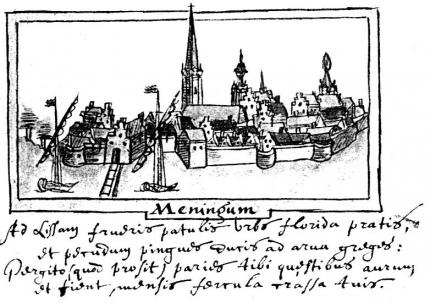 Meningum
Ad Lissam frueris patulis urbs florida pratis,
et pecudum pingues ducis ad arua greges:
Pergito (quod prosit) paries tibi questibus aurum
et fient mensis fercula crassa tuis.